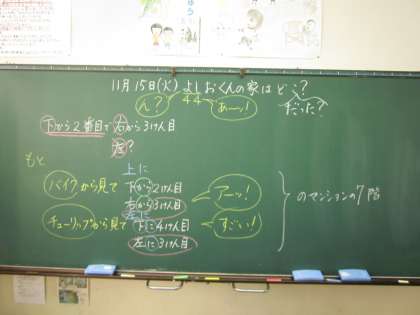 11月15日(火) よしおくんの家はどこ?
ん? 44 あーッ! だった?
下から2番目で右から3けん目
左?
もと
上に
バイクから見て 下から2けん目
右から3けん目 アーッ!
左に
チューリップから見て 下に4けん目 すごい!
左に3けん目
のマンションの7階